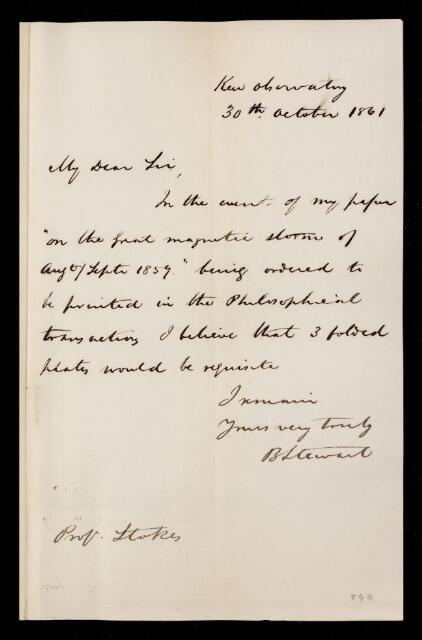 Kew Observatory
30th October 1861
My Dear Sir,
In the event of my paper
"on the great magnetic storm of
Augt/Septr 1859." being ordered to
be printed in the Philosophical
transactions, I believe that 3 folded
plates would be requisite
I remain
Yours very truly
B Stewart
Prof. Stokes